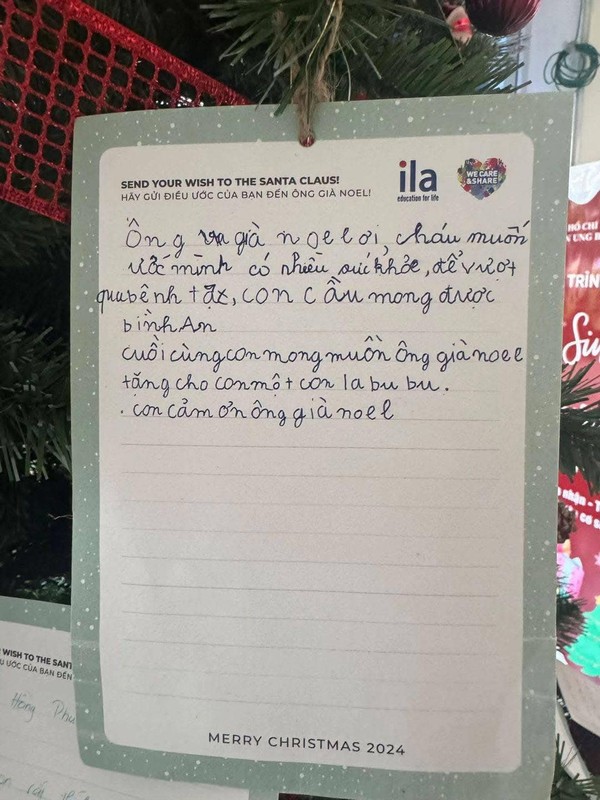 SEND YOUR WISH TO THE SANTA CLAUS!
HÃY GỬI ĐIỀU ƯỚC CỦA BẠN ĐẾN ÔNG GIÀ NOEL!
ila
education for life
WE CARE
&SHARE
Ông già noel ơi, cháu muốn
ước mình có nhiều sức khỏe, để vượt
qua bệnh tật, con cầu mong được
bình An
cuối cùng con mong muốn ông già noel
tặng cho con một con la bu bu.
. con cảm ơn ông già noel
MERRY CHRISTMAS 2024
WISH TO THE SANT
ƯỚC CỦA BẠN ĐẾN
Hồng
HỒ CHÍ
N UNG B
TRÌN